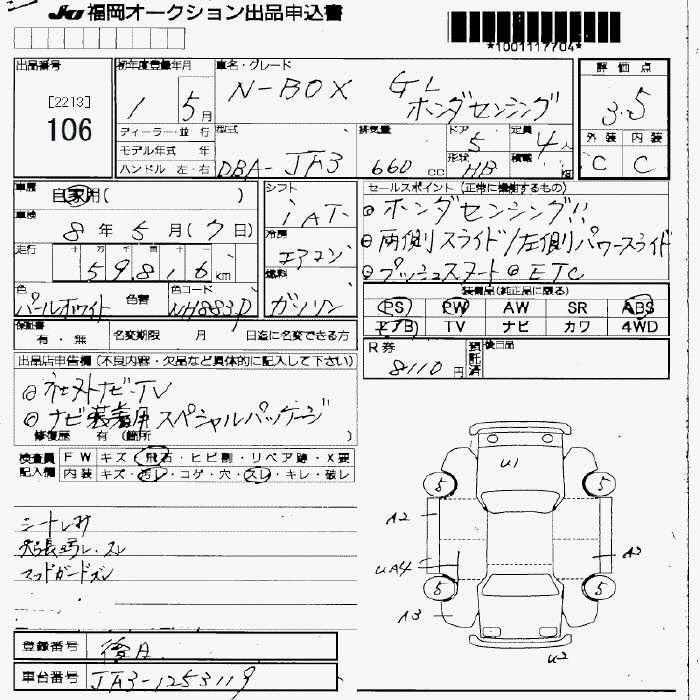 JU 福岡オークション出品申込書
*1001117704*
出品番号
[2213]
106
初年度登録年月
1 5月
車名・グレード
N-BOX GL
ホンダセンシング
評価点
3.5
外装 内装
C C
ディーラー・並行
モデル年式 年
ハンドル 左・右
型式
DBA-JF3
排気量
660cc
ドア
5
形状
HB
定員
4人
積載
kg
車歴
自家用( )
車検
8年5月(7日)
走行
59816km
色
パールホワイト
色替
色コード
NH883P
シフト
iAT
冷房
エアコン
燃料
ガソリン
セールスポイント(正常に機能するもの)
◎ホンダセンシング!!
◎両側スライド/左側パワースライド
◎プッシュスタート◎ETC
装備品(純正品に限る)
PS PW AW SR ABS
エアB TV ナビ カワ 4WD
保証書
有・無
名変期限 月 日迄に名変できる方
R券
8110円
預託済
後日品
出品店申告欄(不良内容・欠品など具体的に記入して下さい)
◎社外ナビ・TV
◎ナビ装着用スペシャルパッケージ
修復歴 有(箇所 )
検査員記入欄
FW キズ・飛石・ヒビ割・リペア跡・X要
内装 キズ・汚レ・コゲ・穴・スレ・キレ・破レ
マッドガードズレ
U1
5 5
A2
A3
UA4
5 5
A3
U2
登録番号 後日
車台番号 JF3-1253119